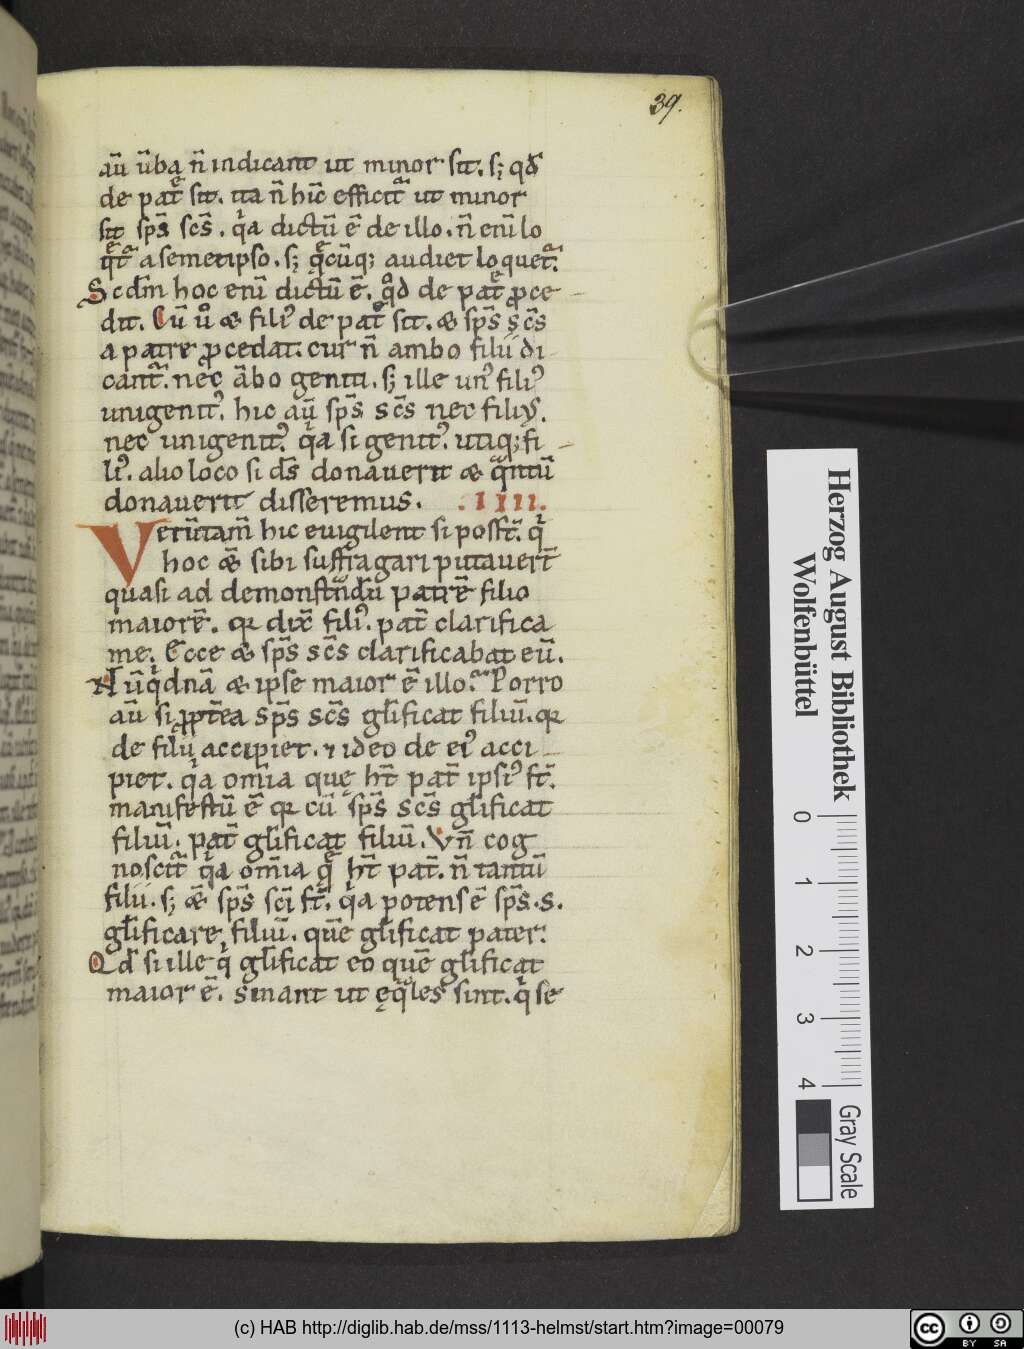 39.
aū ūba n̄ indicant ut minor sit. s; qđ
de patͤ sit. ita n̄ hīc efficit᷑ ut minor
sit sps̄ scs̄. qͥa dictū ē de illo. n̄ enī lo
qͤt᷑ a semetipso. s; qͤcūq; audiet loquet᷑.
Scd̄m hoc enī dictū ē. qͦd de patͤ ꝓce
dit. Cū uͦ & filiꝰ de patͤ sit. & sps̄ scs̄
a patre ꝓcedat. cur n̄ ambo filii di
cant᷑. nec ābo geniti. s; ille unꝰ filiꝰ
unigenitꝰ. hic aū sps̄ scs̄ nec filiꝰ.
nec unigenitꝰ. qͥa si genitꝰ. utiq; fi
liꝰ. alio loco si ds̄ donauerit & qͣntū
donauerit disseremus. .IIII.
Verūtam̄ hic euigilent si posst̄. qͥ
hoc &̄ sibi suffragari putauert̄
quasi ad demonstͣndū patrē filio
maiorē. qꝛ dix̄ filiꝰ. pat̄ clarifica
me. Ecce & sps̄ scs̄ clarificabat eū.
Nūqͥdnā & ipse maior ē illo. Porro
aū si ꝓpt̄ea sps̄ scs̄ gl̄ificat filiū. qꝛ
de filii accipiet. ⁊ ideo de eiꝰ acci
piet. qͥa om̄ia quę ht̄ pat̄ ipsiꝰ st̄.
manifestū ē qꝛ cū sps̄ scs̄ gl̄ificat
filiū. pat̄ gl̄ificat filiū. Vn̄ cog
noscit᷑ qͥa om̄ia qͤ ht̄ pat̄. n̄ tantū
filii. s; &̄ sps̄ scī st̄. qͥa potens ē sps̄.s.
gl̄ificare filiū. quē gl̄ificat pater.
Qd̄ si ille qͥ gl̄ificat eo quē gl̄ificat
maior ē. sinant ut ęqͣles sint. qͥ se
Herzog August Bibliothek
Wolfenbüttel
0 1 2 3 4
Gray Scale
(c) HAB http://diglib.hab.de/mss/1113-helmst/start.htm?image=00079
cc BY SA